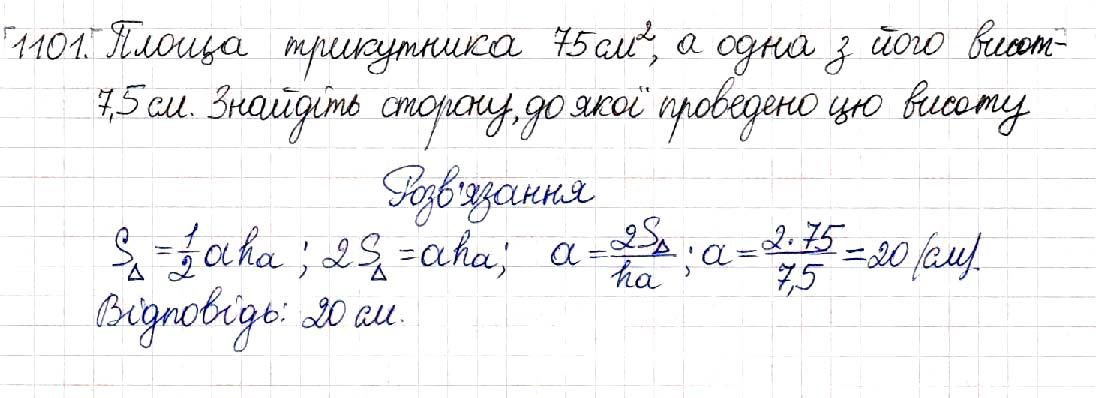 1101. Площа трикутника 75 см², а одна з його висот-
7,5 см. Знайдіть сторону, до якої проведено цю висоту
Розв'язання
S△ = 1/2 aha ; 2S△ = aha; a = 2S△/ha ; a = 2·75/7,5 = 20 (см).
Відповідь: 20 см.